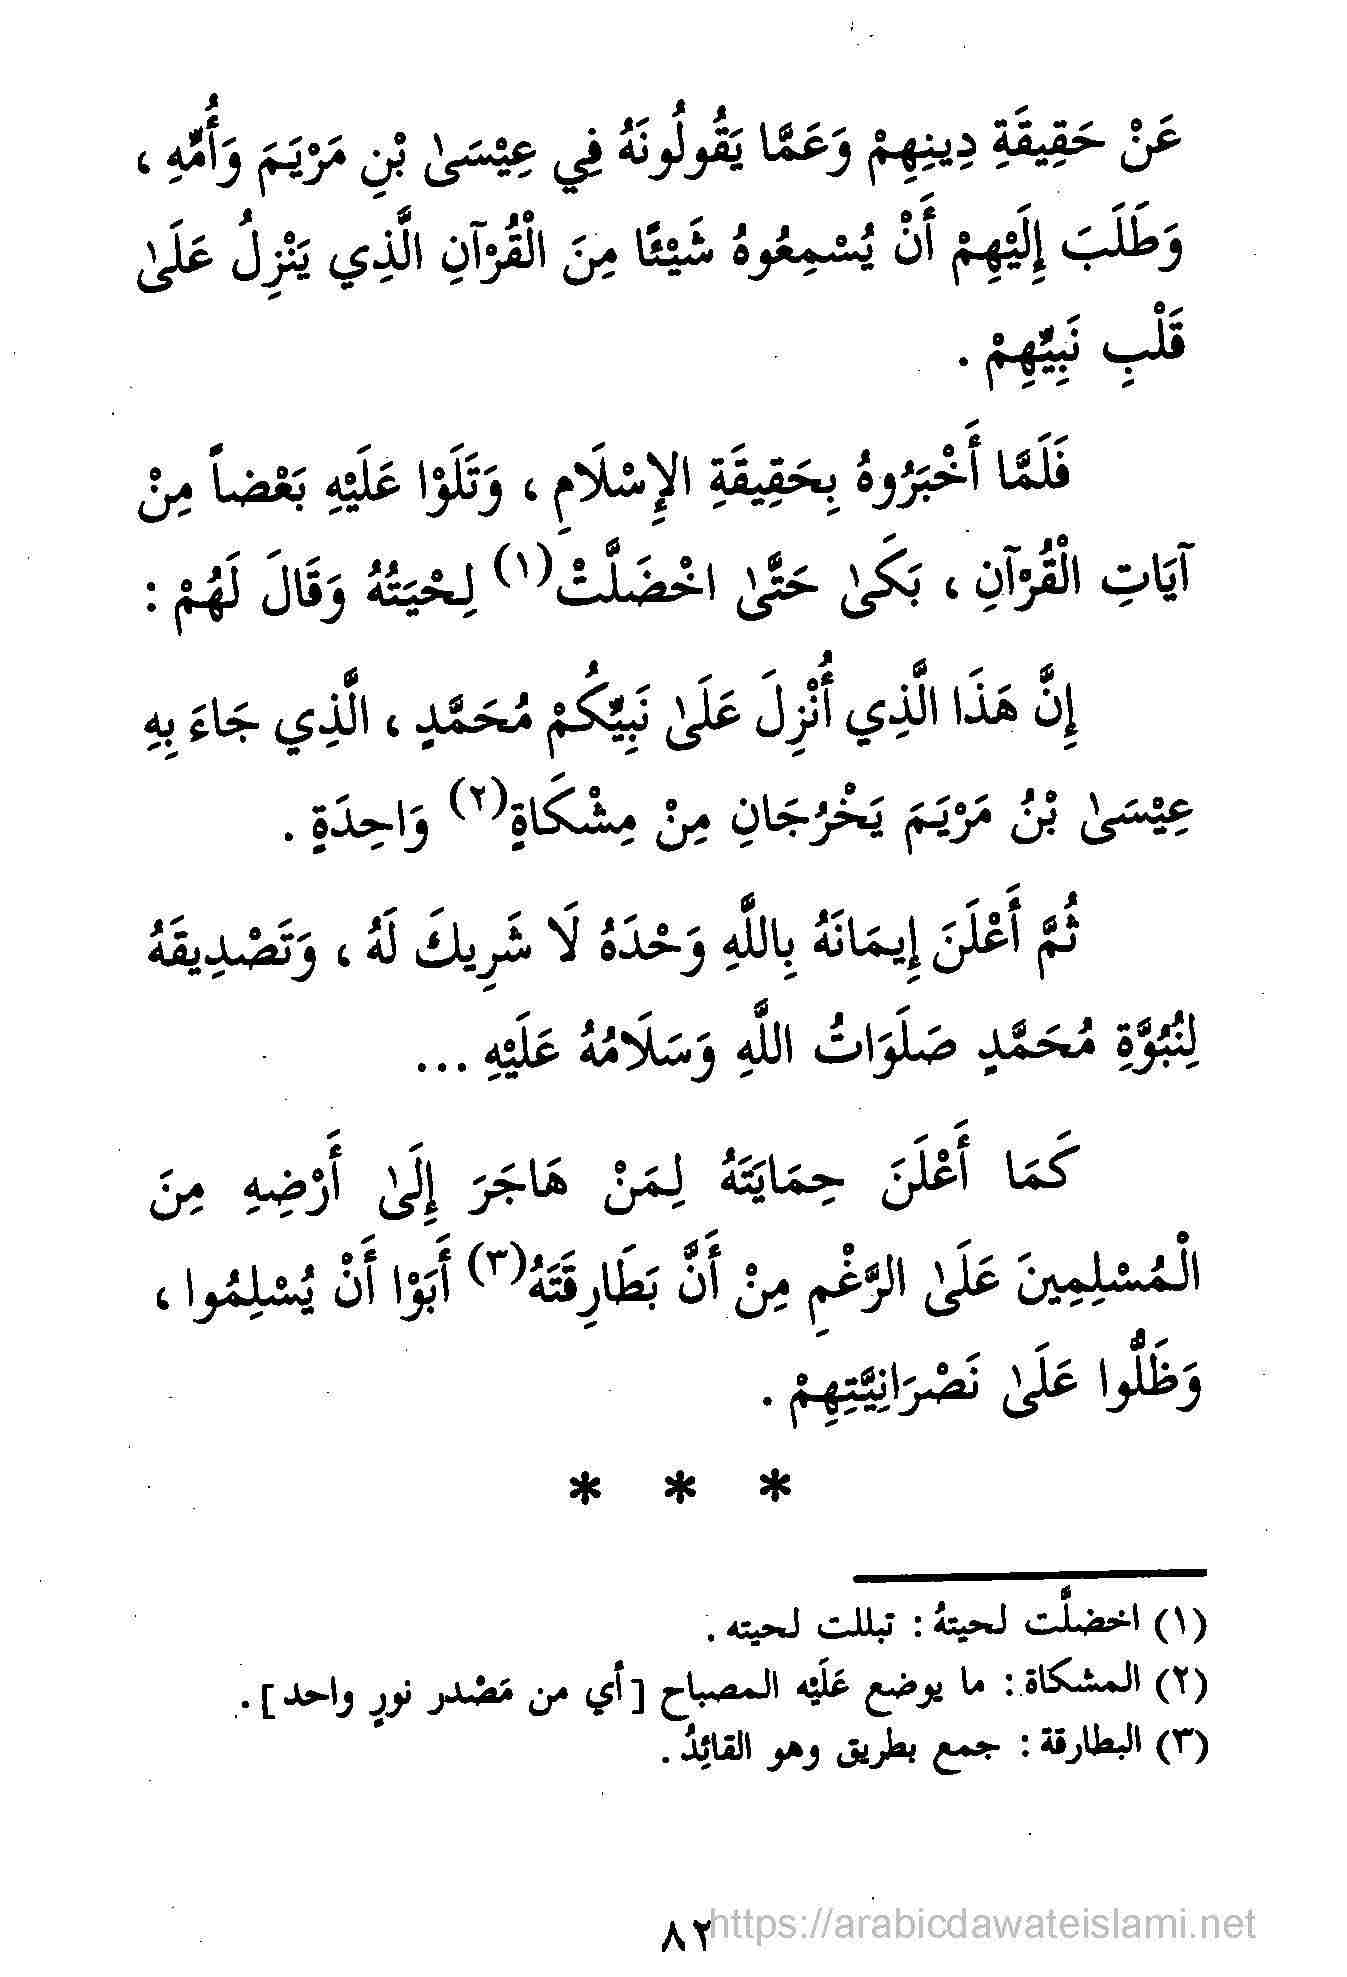 عَنْ حَقِيقَةِ دِينِهِمْ وَعَمَّا يَقُولُونَهُ فِي عِيْسَىٰ بْنِ مَرْيَمَ وَأُمِّهِ ،
وَطَلَبَ إِلَيْهِمْ أَنْ يُسْمِعُوهُ شَيْئًا مِنَ الْقُرْآنِ الَّذِي يَنْزِلُ عَلَىٰ
قَلْبِ نَبِيِّهِمْ .
فَلَمَّا أَخْبَرُوهُ بِحَقِيقَةِ الإِسْلَامِ ، وَتَلَوْا عَلَيْهِ بَعْضاً مِنْ
آيَاتِ الْقُرْآنِ ، بَكَىٰ حَتَّىٰ اخْضَلَّتْ(١) لِحْيَتُهُ وَقَالَ لَهُمْ :
إِنَّ هَذَا الَّذِي أُنْزِلَ عَلَىٰ نَبِيِّكُمْ مُحَمَّدٍ ، الَّذِي جَاءَ بِهِ
عِيْسَىٰ بْنُ مَرْيَمَ يَخْرُجَانِ مِنْ مِشْكَاةٍ(٢) وَاحِدَةٍ .
ثُمَّ أَعْلَنَ إِيمَانَهُ بِاللَّهِ وَحْدَهُ لَا شَرِيكَ لَهُ ، وَتَصْدِيقَهُ
لِنُبُوَّةِ مُحَمَّدٍ صَلَوَاتُ اللَّهِ وَسَلَامُهُ عَلَيْهِ ...
كَمَا أَعْلَنَ حِمَايَتَهُ لِمَنْ هَاجَرَ إِلَىٰ أَرْضِهِ مِنَ
الْمُسْلِمِينَ عَلَىٰ الرَّغْمِ مِنْ أَنَّ بَطَارِقَتَهُ(٣) أَبَوْا أَنْ يُسْلِمُوا ،
وَظَلُّوا عَلَىٰ نَصْرَانِيَّتِهِمْ .
* * *
(١) اخضلَّت لحيتهُ : تبللت لحيته .
(٢) المشكاة : ما يوضع عَلَيْه المصباح [أي من مَصْدر نورٍ واحد] .
(٣) البطارقة : جمع بطريق وهو القائِدُ .
٨٢
https://arabicdawateislami.net